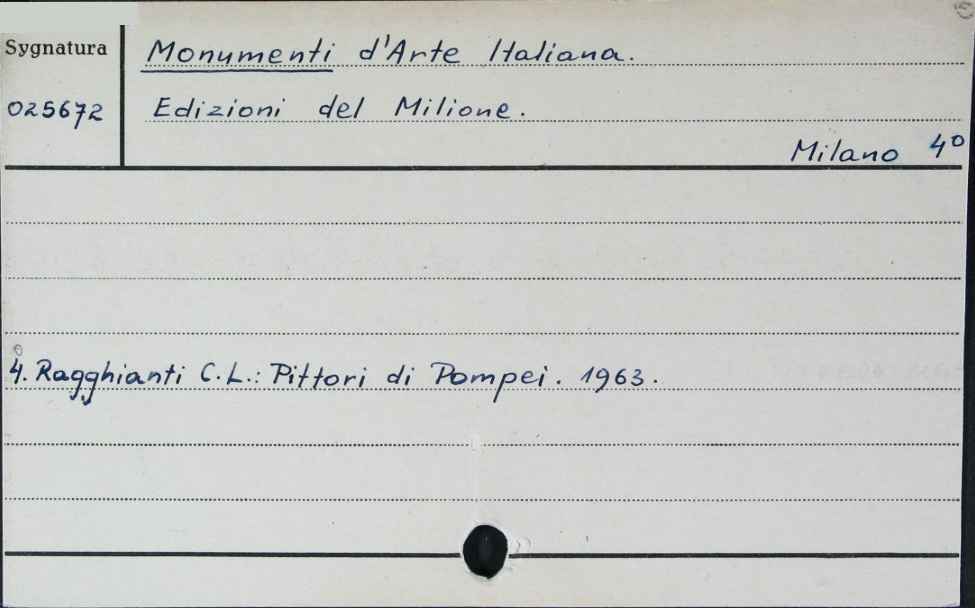 Sygnatura
Monumenti d'Arte Italiana.
025672
Edizioni del Milione.
Milano 4°
4. Ragghianti C.L.: Pittori di Pompei. 1963.